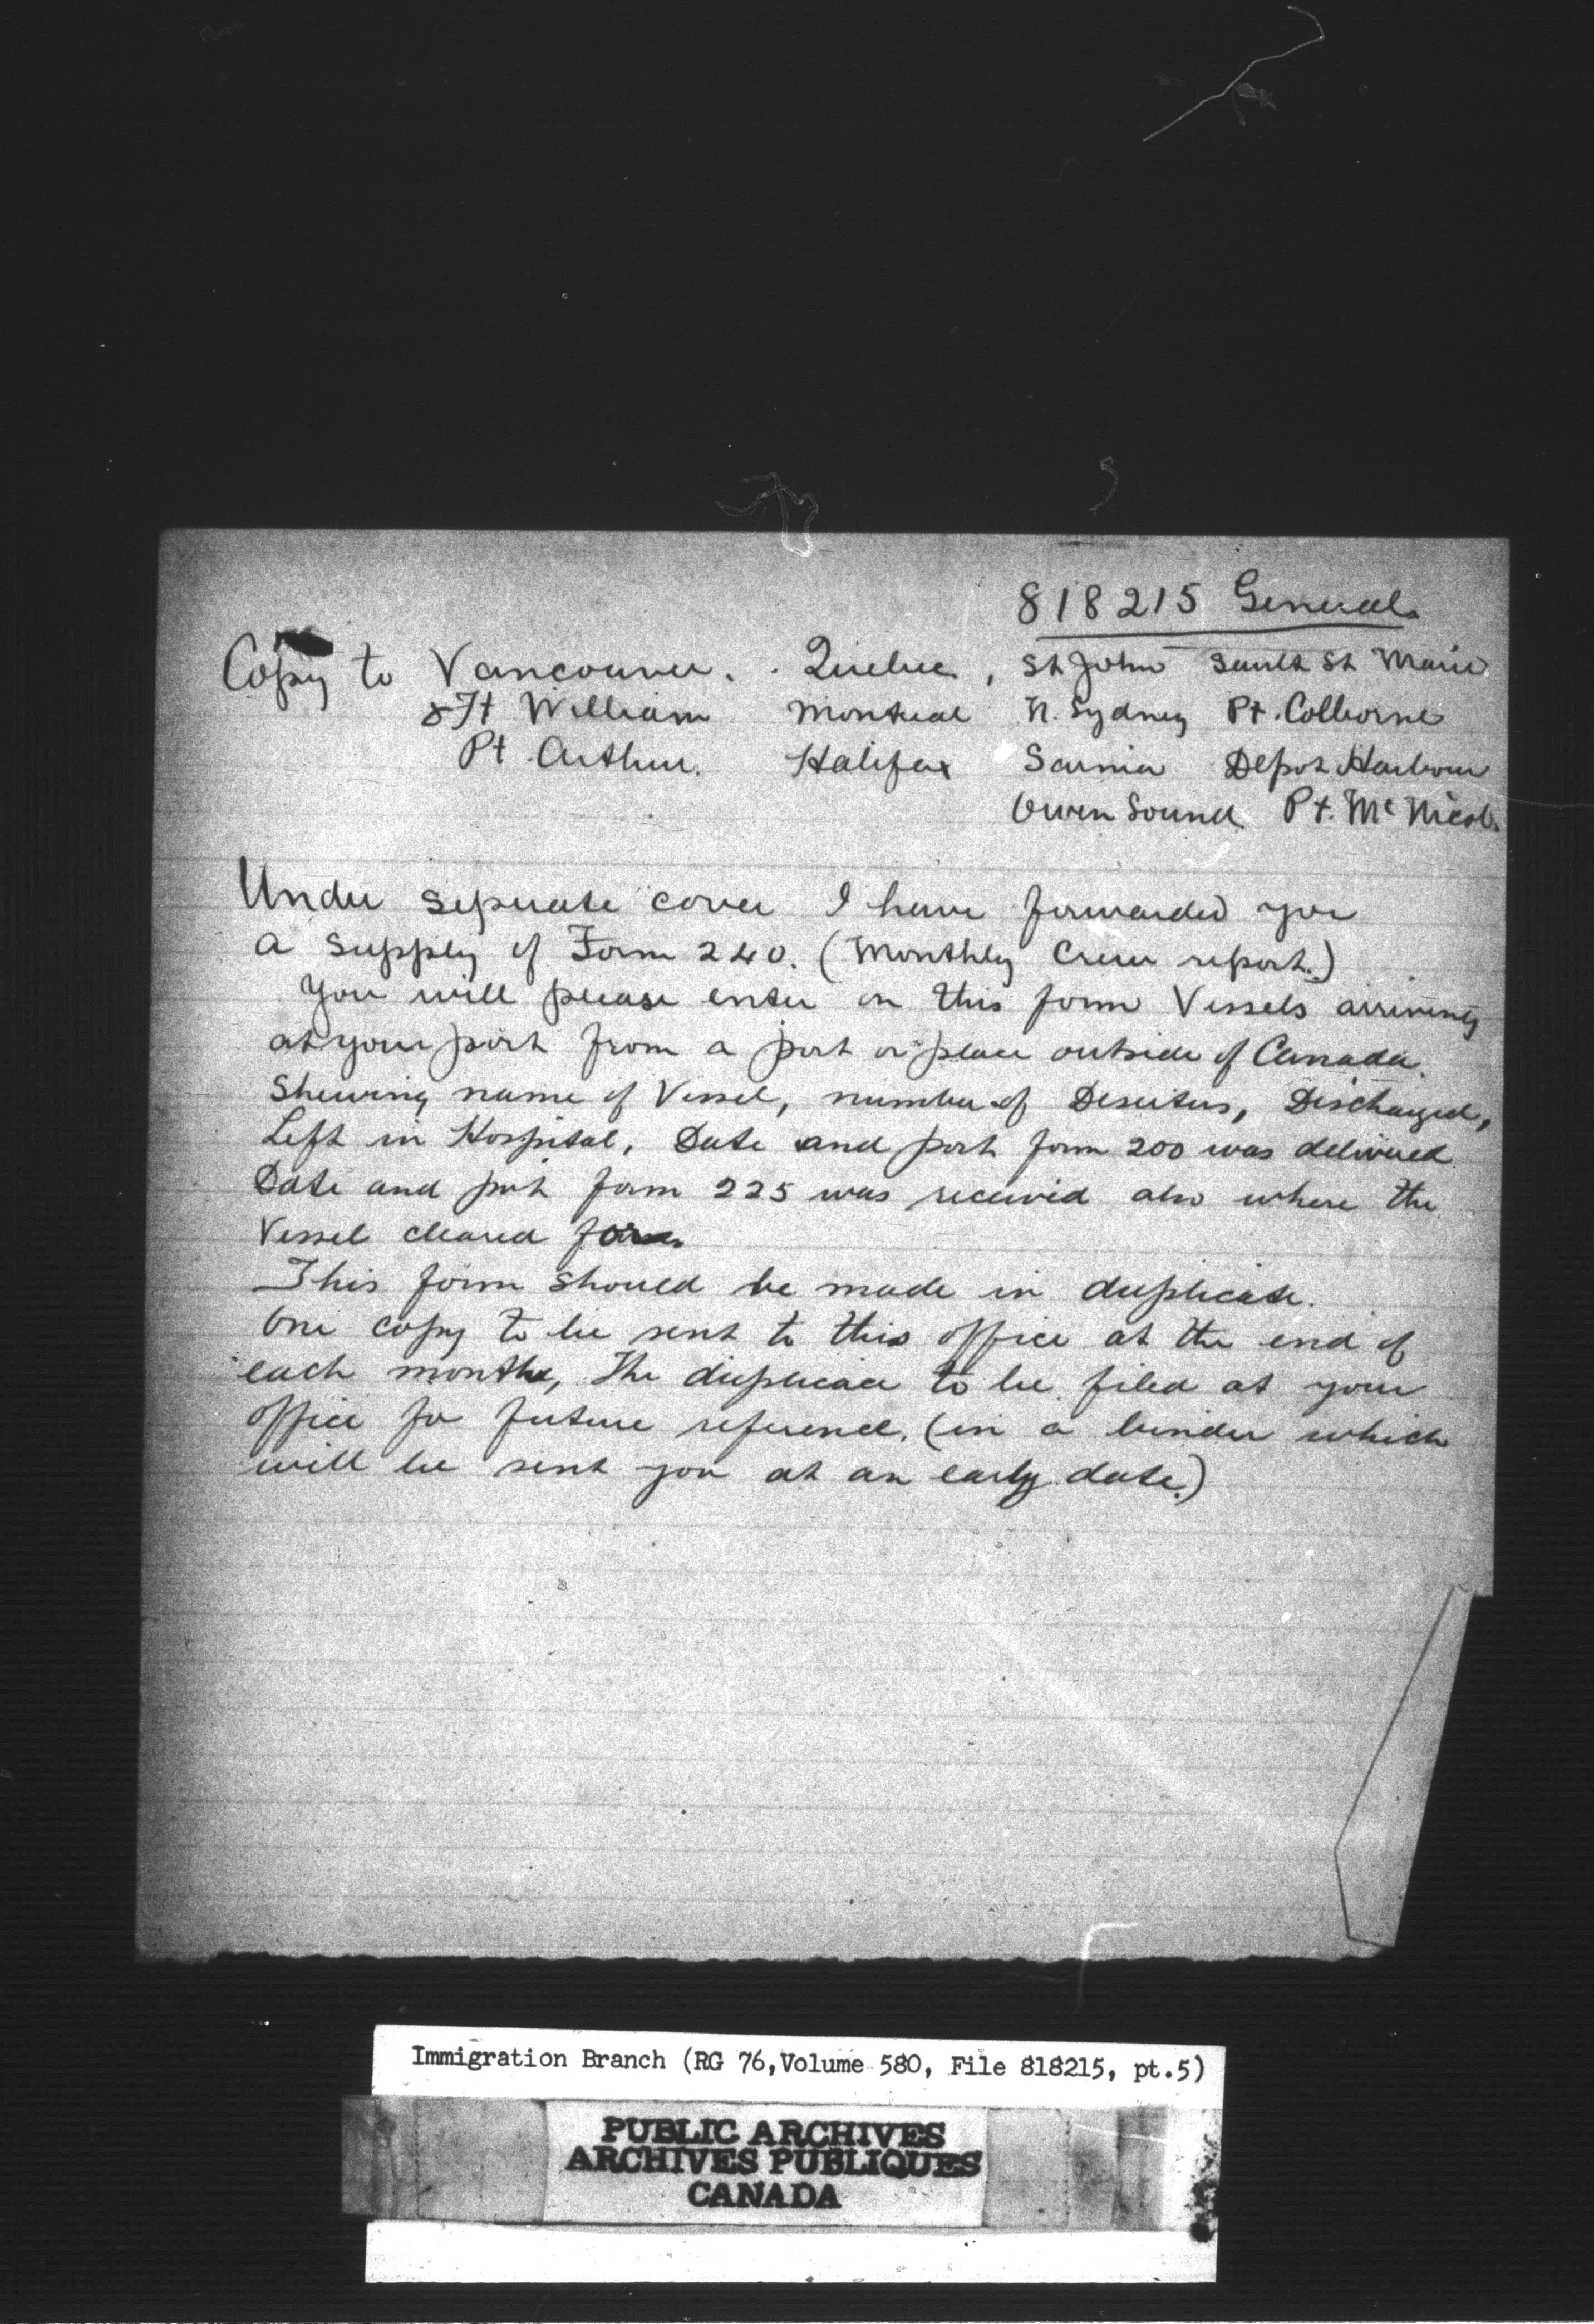 818215 General
Copy to Vancouver. Quebec, St John Sault St Marie
& Ft William Montreal N. Sydney Pt. Colborne
Pt Arthur. Halifax Sarnia Depot Harbour
Owen Sound Pt. McNicol
Under seperate cover I have forwarded you
a supply of Form 240. (Monthly Crew report.)
You will please enter on this form Vessels arriving
at your port from a port or place outside of Canada.
Shewing name of Vessel, number of Deserters, Discharged,
Left in Hospital, Date and port form 200 was delivered
Date and port form 225 was received also where the
Vessel cleared for.
This form should be made in duplicate.
One copy to be sent to this office at the end of
each month, The duplicate to be filed at your
office for future reference. (in a binder which
will be sent you at an early date.)
Immigration Branch (RG 76, Volume 580, File 818215, pt.5)
PUBLIC ARCHIVES
ARCHIVES PUBLIQUES
CANADA